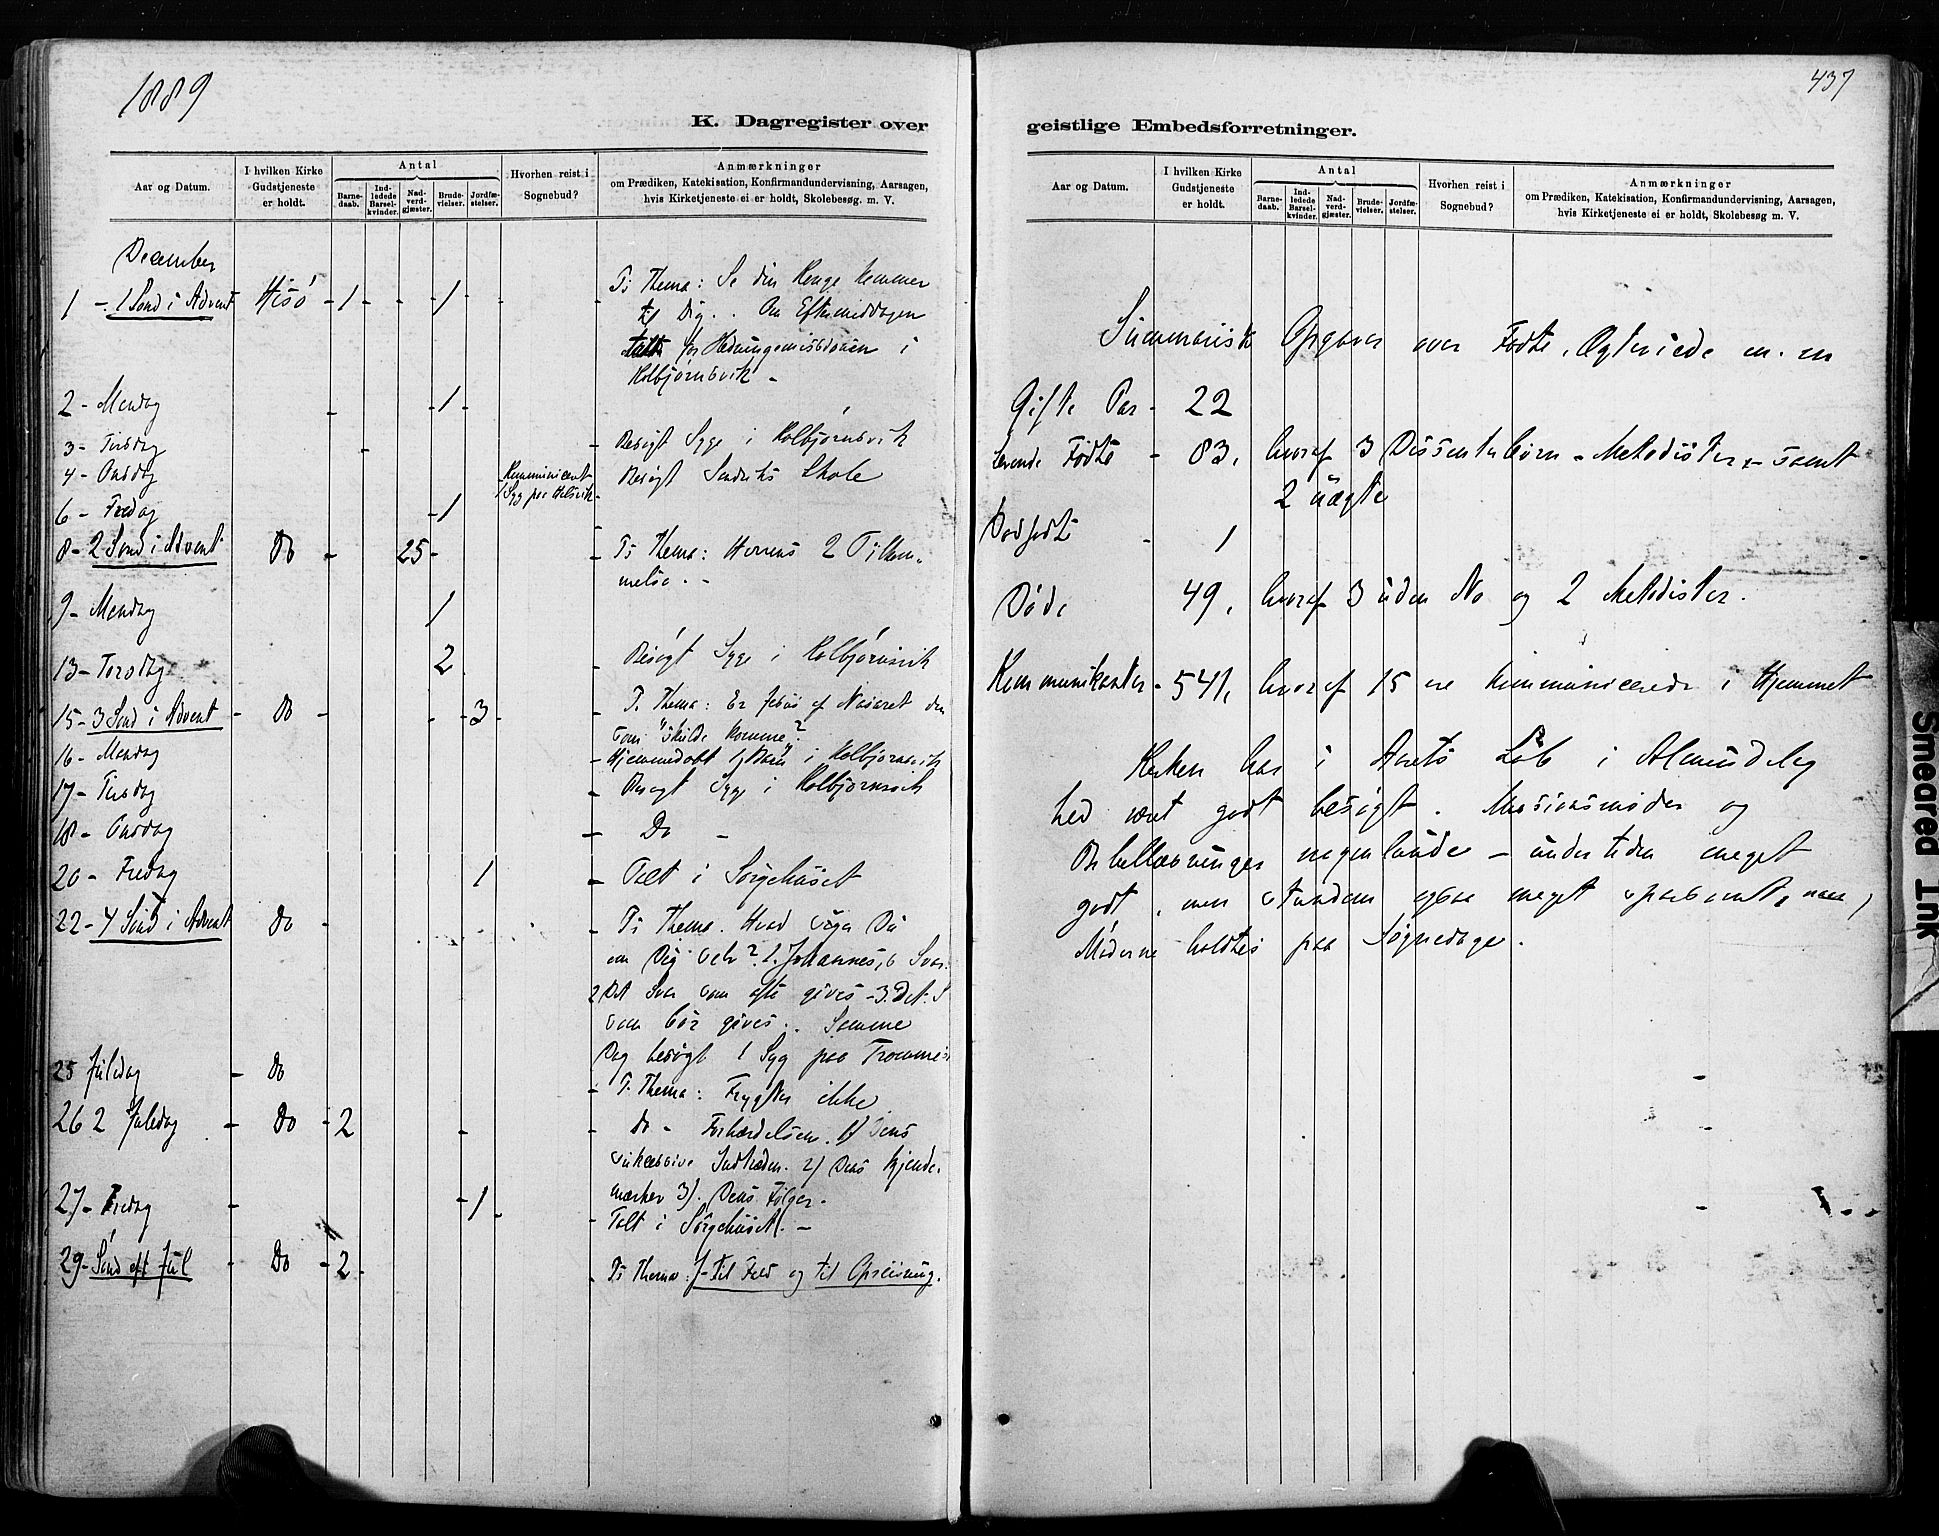 1889
K. Dagregister over
Aar og Datum.
I hvilken Kirke Gudstjeneste er holdt.
Antal
Barne-daab.
Ind-ledede Barsel-kvinder.
Nad-verd-gjæster.
Brude-vielser.
Jordfæ-stelser.
Hvorhen reist i Sognebud?
Anmærkninger
om Prædiken, Katekisation, Konfirmandundervisning, Aarsagen,
hvis Kirketjeneste ei er holdt, Skolebesøg. m. V.
December
1 - 1 Sønd i Advent Hisö - 1 - 1 - Thema: Se din Konge kommer
til Dig. . Om Eftermiddagen
talt for Hedningemissionen i
Kolbjörnsvik -
2 - Mandag - 1 -
3 - Tirsdag - Besögt Syge i Kolbjörnsvik
4 - Onsdag Kommuniceret Besögt Skole
1 Syg paa
6 - Fredag - 1
8 - 2 Sønd i Advent Do - 25 - Thema: Herrens 2 Tilkom-
melse. -
9 - Mandag 1
13 - Torsdag 2 - Besögt Syge i Kolbjörnsvik
15 - 3 Sönd i Advent - Do - 3 - Thema: Er Jesus af Nasaret den
som "skulde komme"?
16 - Mandag - Hjemmedöbt 1 Barn i Kolbjörnsvik
17 - Tirsdag - Besögt Syge i Kolbjörnsvik
18 - Onsdag - Do -
20 - Fredag 1 - Talt i Sörgehuset
22 - 4 Sönd i Advent Do - - Thema. Hvad siger Du
om Dig selv? 1. Johannes's Svar.
2 Det Svar som ofte gives - 3. Det S
som bör gives. . Samme
Dag besögt 1 Syg paa Tromö
25 Juledag - Do - Thema: Frygter ikke
26 2 Juledag - Do - 2 - - Do - Forhærdelsen. 1) Dens
successive Indtræden. 2) Dens Kjende-
mærker 3). Dens Fölger.
27 - Fredag - 1 - Talt i Sörgehuset. -
29 - Sönd eft Jul - Do - 2 - Thema: - til Fald og til Opreisning.
437
geistlige Embedsforretninger.
Aar og Datum.
I hvilken Kirke Gudstjeneste er holdt.
Antal
Barne-daab.
Ind-ledede Barsel-kvinder.
Nad-verd-gjæster.
Brude-vielser.
Jordfæ-stelser.
Hvorhen reist i Sognebud?
Anmærkninger
om Prædiken, Katekisation, Konfirmandundervisning, Aarsagen,
hvis Kirketjeneste ei er holdt, Skolebesøg m. V.
Summarisk Opgaver over Födte, Ægteviede m. m
Gifte Par - 22
Levende Födte - 83, hvoraf 3 Dissenterbörn - Metodister - samt
2 uægte
Dödfödt - 1
Döde 49, hvoraf 3 uden No og 2 Metodister.
Kommunikanter - 541, hvoraf 15 ere kommunicerede i Hjemmet
Kirken har i Aarets Löb i Almindelig
hed været godt besögt. Missionsmöder og
Bibellæsninger nogenlunde - undertiden meget
godt, men stundom ogsaa meget sparsomt, naar
Möderne holdtes paa Sögnedage.
Smeared Ink